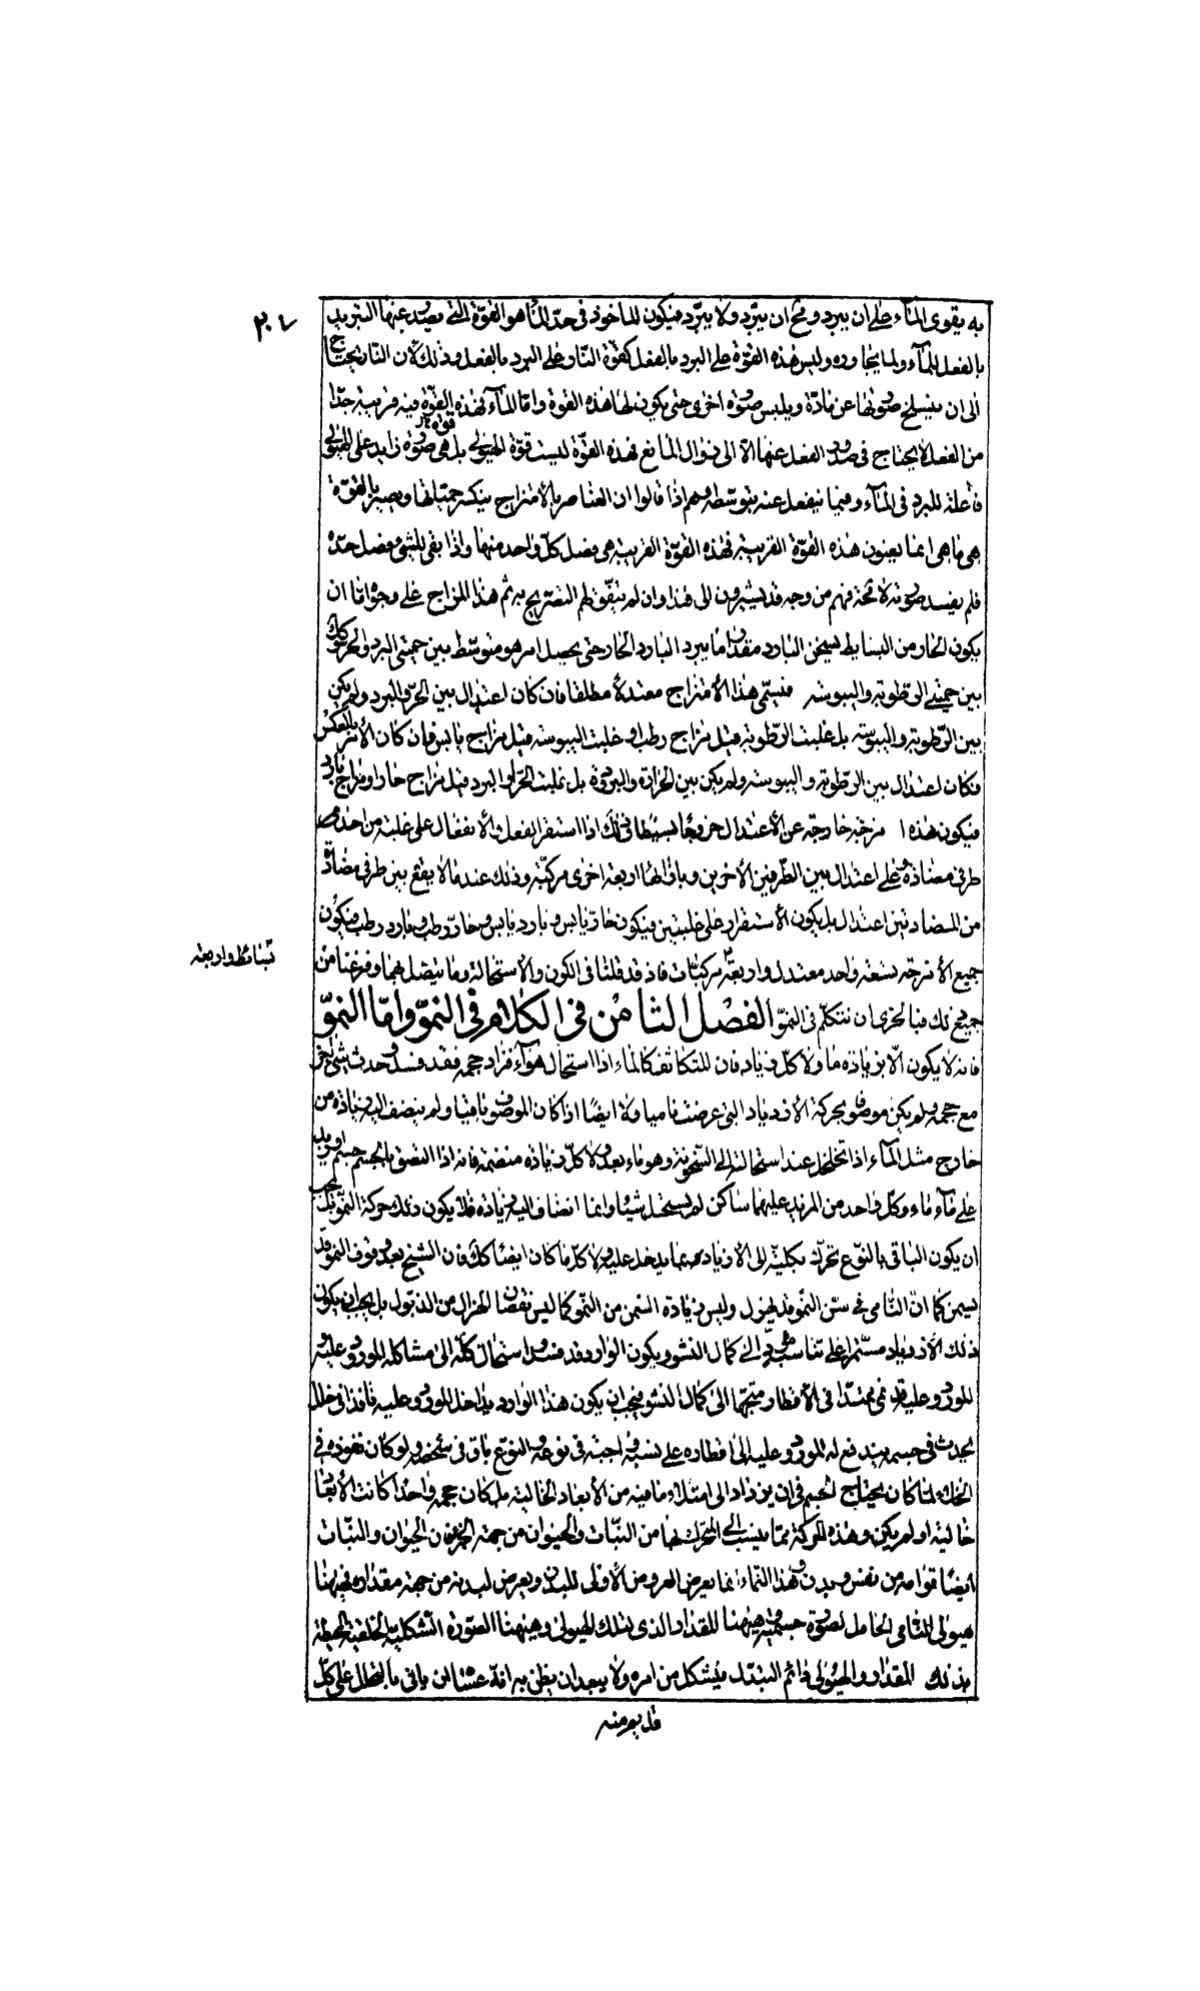 ٢٠٤
به يقوى المآء على ان يبرد ومح ان يبرّد ولا يبرّد فيكون للماخوذ فى حدّ المآء هو القوّة التى يصدر عنها التبريد
بالفعل للمآء ولما يجاوره وليس هذه القوّة على البرد بالفعل كقوّة النار على البرد بالفعل وذلك لان النار يحتاج
الى ان ينسلخ صورتها عن مادّة ويلبس صورة اخرى حتى يكون لها هذه القوة وامّا المآء فهذه القوّة فيه قريبة جدّا
من الفعل لا يحتاج فى صدور الفعل عنها الّا الى زوال المانع فهذه القوّة ليست قوّة الهيولى بل هى قوة صورة زايد على الهيولى
فاعلة للبرد فى المآء وفيما ينفعل عنه بتوسّطه وهم اذا قالوا ان العناصر بالامتزاج ينكسر حميّاتها ويصير بالقوّة
هى ما هى انما يعنون هذه القوّة القريبة فهذه القوّة القريبة هى فصل كلّ واحد منها واذا بقى للشى فصل حدّه
فلم يفسد صورته لا محة فهم من وجه قد يشيرون الى هذا وان لم يتّفق لهم التصريح به ثم هذا المزاج على وجوه امّا ان
يكون الحار من البسايط يسخن البارد مقدار ما يبرد البارد الحار حتى يحصل امر هو متوسّط بين حميتى البرد والحر وكك
بين حميتى الرّطوبة واليبوسة فيسمّى هذا الأمتزاج معتدلا مطلقا فان كان اعتدال بين الحرّ والبرد ولم يكن
بين الرّطوبة واليبوسة بل غلبت الرّطوبة قيل مزاج رطب او غلبت اليبوسة قيل مزاج يابس فان كان الأمر بالعكس
فكان اعتدال بين الرطوبة واليبوسة ولم يكن بين الحرارة والبرودة بل غلبت الحرّ او البرد قيل مزاج حار او مزاج بارد
فيكون هذه امزجة خارجة عن الأعتدال خروجا بسيطا فى ذلك اذا استقر الفعل والأنفعال على غلبة من احد
طرفى مضادة وعلى اعتدال بين الطّرفين الأخرين وباقابلها اربعة اخرى مركّبة وذلك عندما لا يقع بين طرفى مضادة
من المضادتين اعتدال بل يكون الأستقرار على غلبتين فيكون حار يابس وبارد يابس وحار رطب وبارد رطب فيكون
جميع الأمزجة تسعة واحد معتدل واربعة مركبات فاذ قد قلنا فى الكون والأستحالة وما يتصل بهما وفرغنا من
بسائط واربعة
جميع ذلك فبالحرى ان نتكلّم فى النموّ الفصل الثامن فى الكلام فى النموّ وامّا النموّ
فانه لا يكون الّا بزيادة ما ولا كلّ زياد فان للتكاثف كالماء اذا استحال هوآء فزاد حجمه فقد فسد وحدث شى اخر
مع حجمه ولم يكن موضوع لحركة الأزدياد التى عرضت ناميا ولا ايضًا اذا كان الموضوع باقيا ولم ينضف اليه زيادة من
خارج مثل المآء اذا تخلخل عند استحالته الى السّخونة وهو ماء بعد ولا كلّ زيادة منضمة فانه اذا التصق بالجسم جسم او زيد
على مآء ماء وكلّ واحد من المزيد عليهما ساكن لم يستحل شيئا وانما انضاف اليه زيادة فلا يكون ذلك حركة النموّ بل يجب
ان يكون الباقى بالنوع تحرّك بكليته الى الأزدياد مما يدخل عليه ولا كلّ ما كان ايضا كك فان الشيخ بعد وقوف النمو قد
يسمن كما انّ النامى فى سنّ النمو قد يهزل وليس زيادة السّمن من النمو كما ليس نقصان الهزال من الذبول بل يجب ان يكون
ذلك الأزدياد مستمرا على تناسب مؤدّ الى كمال النشو ويكون الوارد قد فسد واستحال كله الى مشاكلة المورود عليه
المورود عليه قد نمى ممتدّا فى الأقطار متّجها الى كمال النشو فيجب ان يكون هذا الوارد يداخل المورود عليه نافذا فى خلل
يحدث فى جسمه يندفع له المورود عليه الى اقطاره على نسبة واجبة فى نوعه والنوع باق فى شخصه ولو كان نفوذه فى
الخلاء لما كان يحتاج الجسم فى ان يزداد الى امتلاء ما فيه من الأبعاد الخالية بل كان حجمه واحدًا كانت الأبعاد
خالية او لم يكن وهذه الحركة مما ينسب الى المتحرّك بها من النبات والحيوان من جهة الجزء فان الحيوان والنبات
ايضًا قوامه من نفس وبدن وهذا النماء انما يعرض العروض الأولى للبدن ويعرض لبدنه من جهة مقداره فههنا
هيولى النامى الحامل لصورة جسمية وههنا المقدار الذى لتلك الهيولى وههنا الصّورة التشكليّة الخلقية المحيطة
بذلك المقدار والهيولى دائم التبدّل فيشكل من امره ولا يبعد ان يظن به انه عسى ان ياتى بالتحلل على كلّ
قديم منه